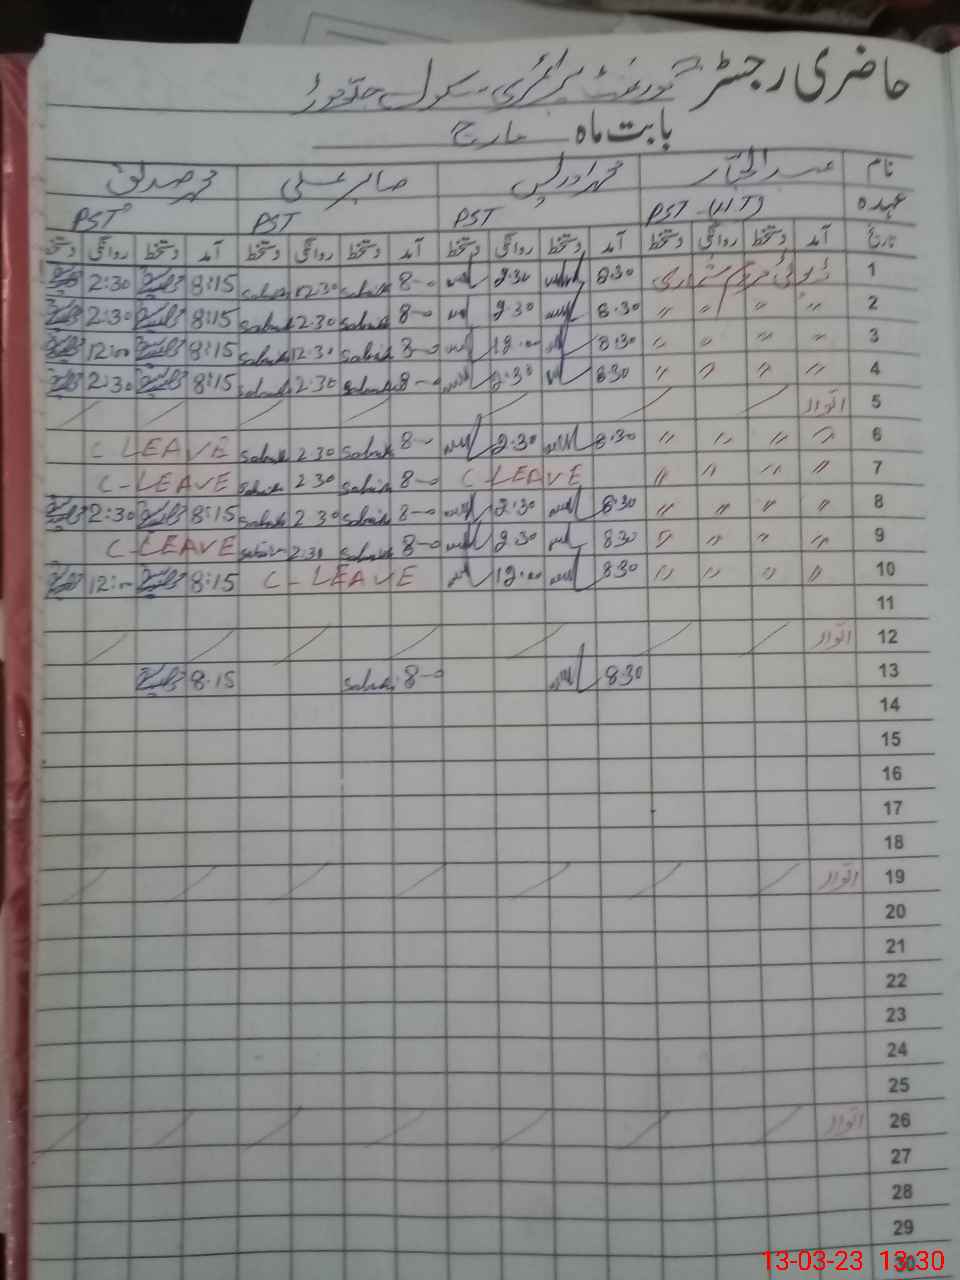 حاضری رجسٹر گورنمنٹ پرائمری سکول
بابت ماہ مارچ
نام عبدالجبار محمد ادریس صابر علی محمد صدیق
عہدہ PST (HT) PST PST PST
تاریخ آمد دستخط روانگی دستخط آمد دستخط روانگی دستخط آمد دستخط روانگی دستخط آمد دستخط روانگی دستخط
1 ڈیوٹی مردم شماری 8:30 2:30 8-00 Sabir 12:30 Sabir 8:15 2:30
2 " " " " 8:30 2:30 8-00 Sabir 2:30 Sabir 8:15 2:30
3 " " " " 8:30 12:00 8-00 Sabir 12:30 Sabir 8:15 12:00
4 " " " " 8:30 2:30 8-00 Sabir 2:30 Sabir 8:15 2:30
5 اتوار
6 " " " " 8:30 2:30 8-00 Sabir 2:30 Sabir C LEAVE
7 " " " " C LEAVE 8-00 Sabir 2:30 Sabir C-LEAVE
8 " " " " 8:30 2:30 8-00 Sabir 2:30 Sabir 8:15 2:30
9 " " " " 8:30 2:30 8-00 Sabir 2:30 Sabir C-LEAVE
10 " " " " 8:30 12:00 C-LEAVE 8:15 12:00
11
12 اتوار
13 8:30 8-00 Sabir 8:15
14
15
16
17
18
19 اتوار
20
21
22
23
24
25
26 اتوار
27
28
29
30
13-03-23 13:30